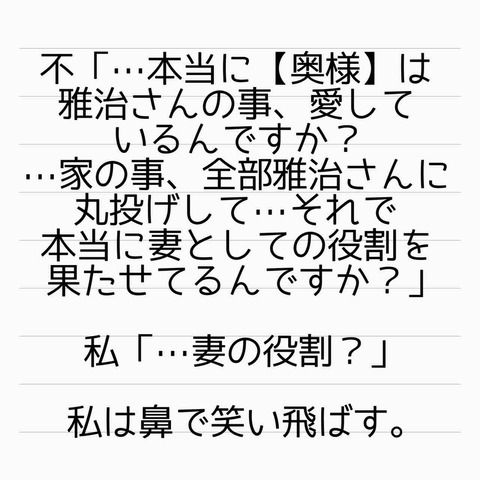 不「…本当に【奥様】は
雅治さんの事、愛して
いるんですか？
…家の事、全部雅治さんに
丸投げして…それで
本当に妻としての役割を
果たせてるんですか？」
私「…妻の役割？」
私は鼻で笑い飛ばす。